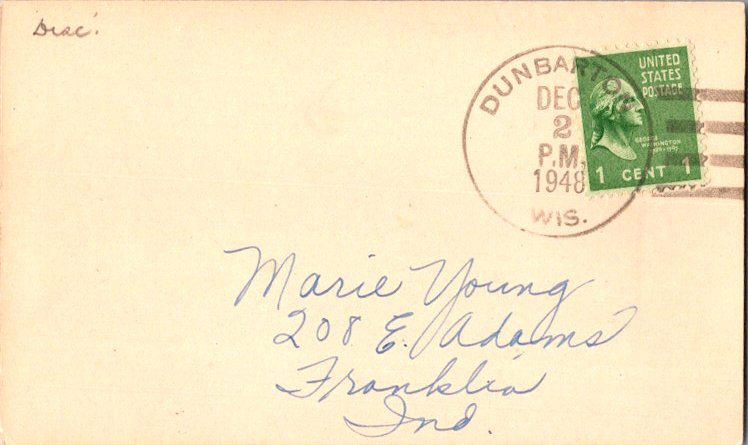 Disc.
DUNBARTON
DEC
2
P.M.
1948
WIS.
UNITED
STATES
POSTAGE
GEORGE
WASHINGTON
1789-1797
1 CENT 1
Marie Young
208 E. Adams
Franklin
Ind.